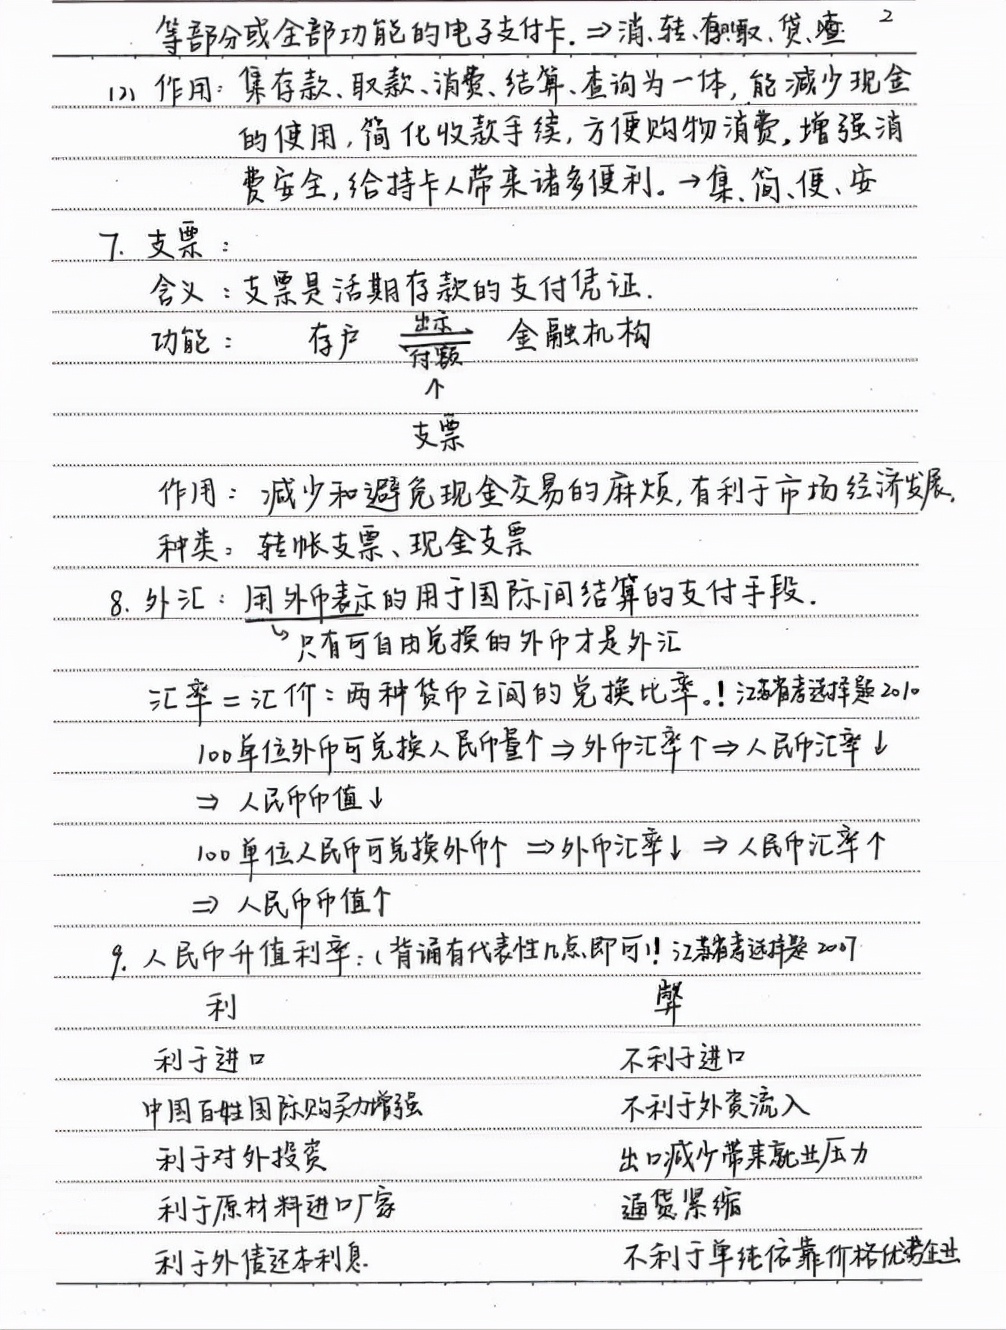 2
等部分或全部功能的电子支付卡.⇒消、转、存取、贷、查
(2) 作用: 集存款、取款、消费、结算、查询为一体, 能减少现金
的使用, 简化收款手续, 方便购物消费, 增强消
费安全, 给持卡人带来诸多便利。→集、简、便、安
7. 支票:
含义: 支票是活期存款的支付凭证.
功能: 存户 出示 金融机构
付款
↑
支票
作用: 减少和避免现金交易的麻烦, 有利于市场经济发展.
种类: 转帐支票、现金支票
8. 外汇: 用外币表示的用于国际间结算的支付手段.
↳只有可自由兑换的外币才是外汇
汇率=汇价: 两种货币之间的兑换比率。! 江苏省考选择题2010
100单位外币可兑换人民币量↑⇒外币汇率↑⇒人民币汇率↓
⇒ 人民币币值↓
100单位人民币可兑换外币↑ ⇒外币汇率↓ ⇒ 人民币汇率↑
⇒ 人民币币值↑
9. 人民币升值利率: (背诵有代表性几点即可)! 江苏省考选择题2007
利 弊
利于进口 不利于进口
中国百姓国际购买力增强 不利于外资流入
利于对外投资 出口减少带来就业压力
利于原材料进口厂家 通货紧缩
利于外债还本利息 不利于单纯依靠价格优势企业